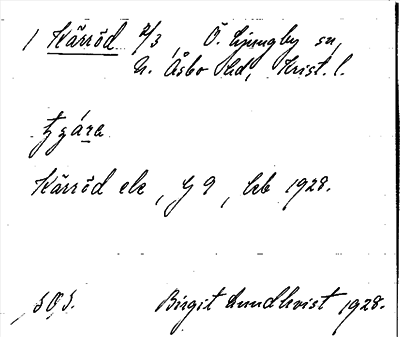 1 Kärröd 2/3, Ö. Ljungby sn,
N. Åsbo hd, Krist. l.
Kärröd ek, G 9, lrb 1928.
SOS. Birgit Lundkvist 1928.